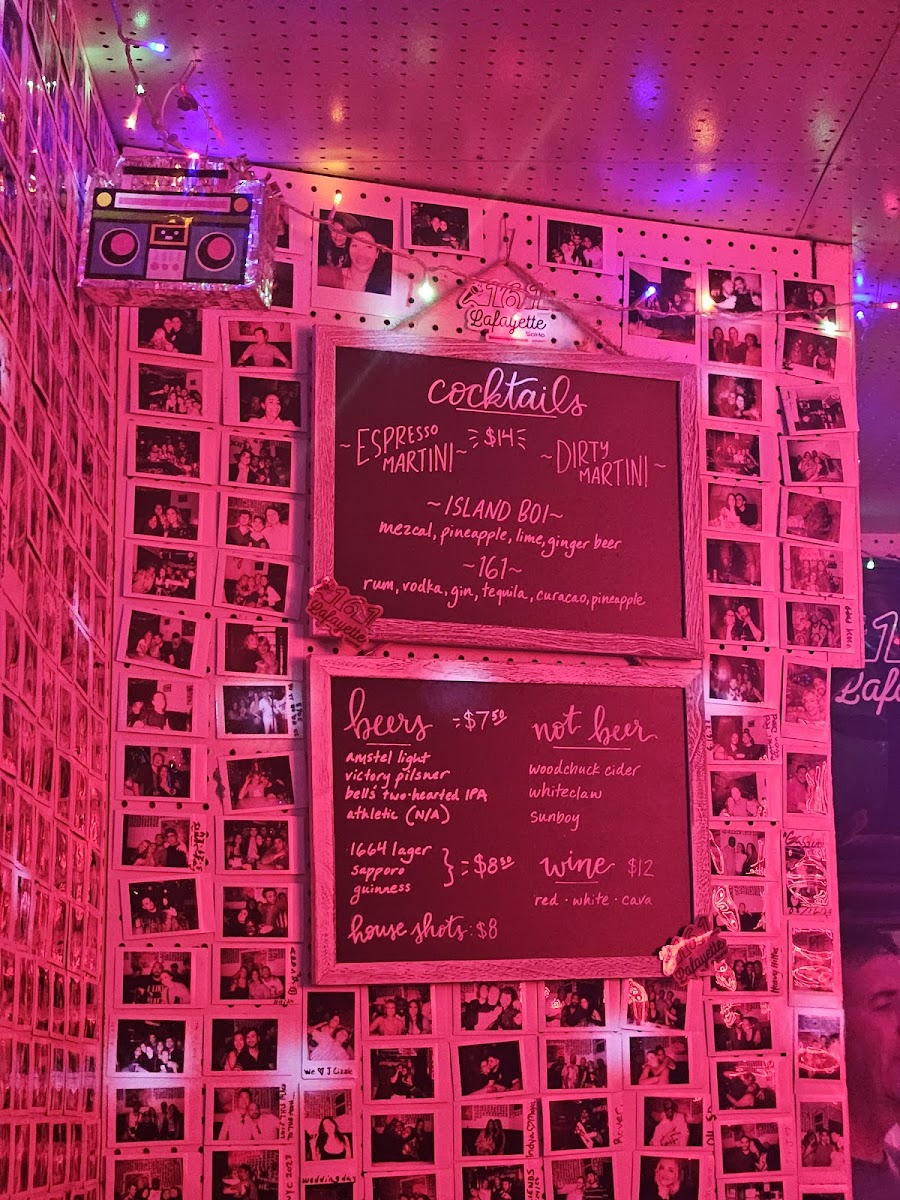 161
Lafayette
SoHo
cocktails
~ESPRESSO MARTINI~
$14
~DIRTY MARTINI~
~ISLAND BOI~
mezcal, pineapple, lime, ginger beer
~161~
rum, vodka, gin, tequila, curacao, pineapple
161
Lafayette
beers = $7.50
amstel light
victory pilsner
bell's two-hearted IPA
athletic (N/A)
1664 lager
sapporo
guinness
} = $8.50
house shots: $8
not beer
woodchuck cider
whiteclaw
sunboy
wine $12
red · white · cava
Lafayette
We ♡ J Lizzie
wedding day